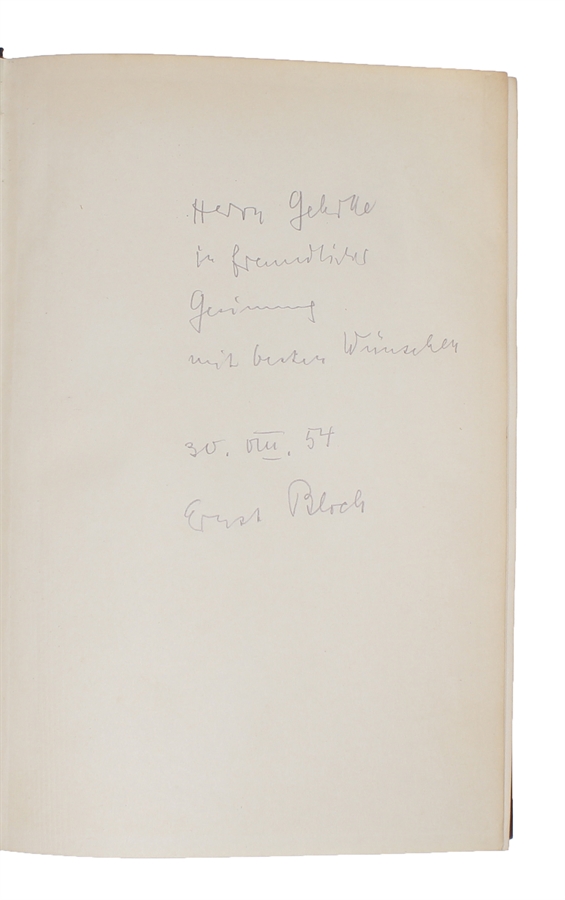 Herrn Gehrke
in freundlicher
Gesinnung
mit besten Wünschen
30. VIII. 54
Ernst Bloch